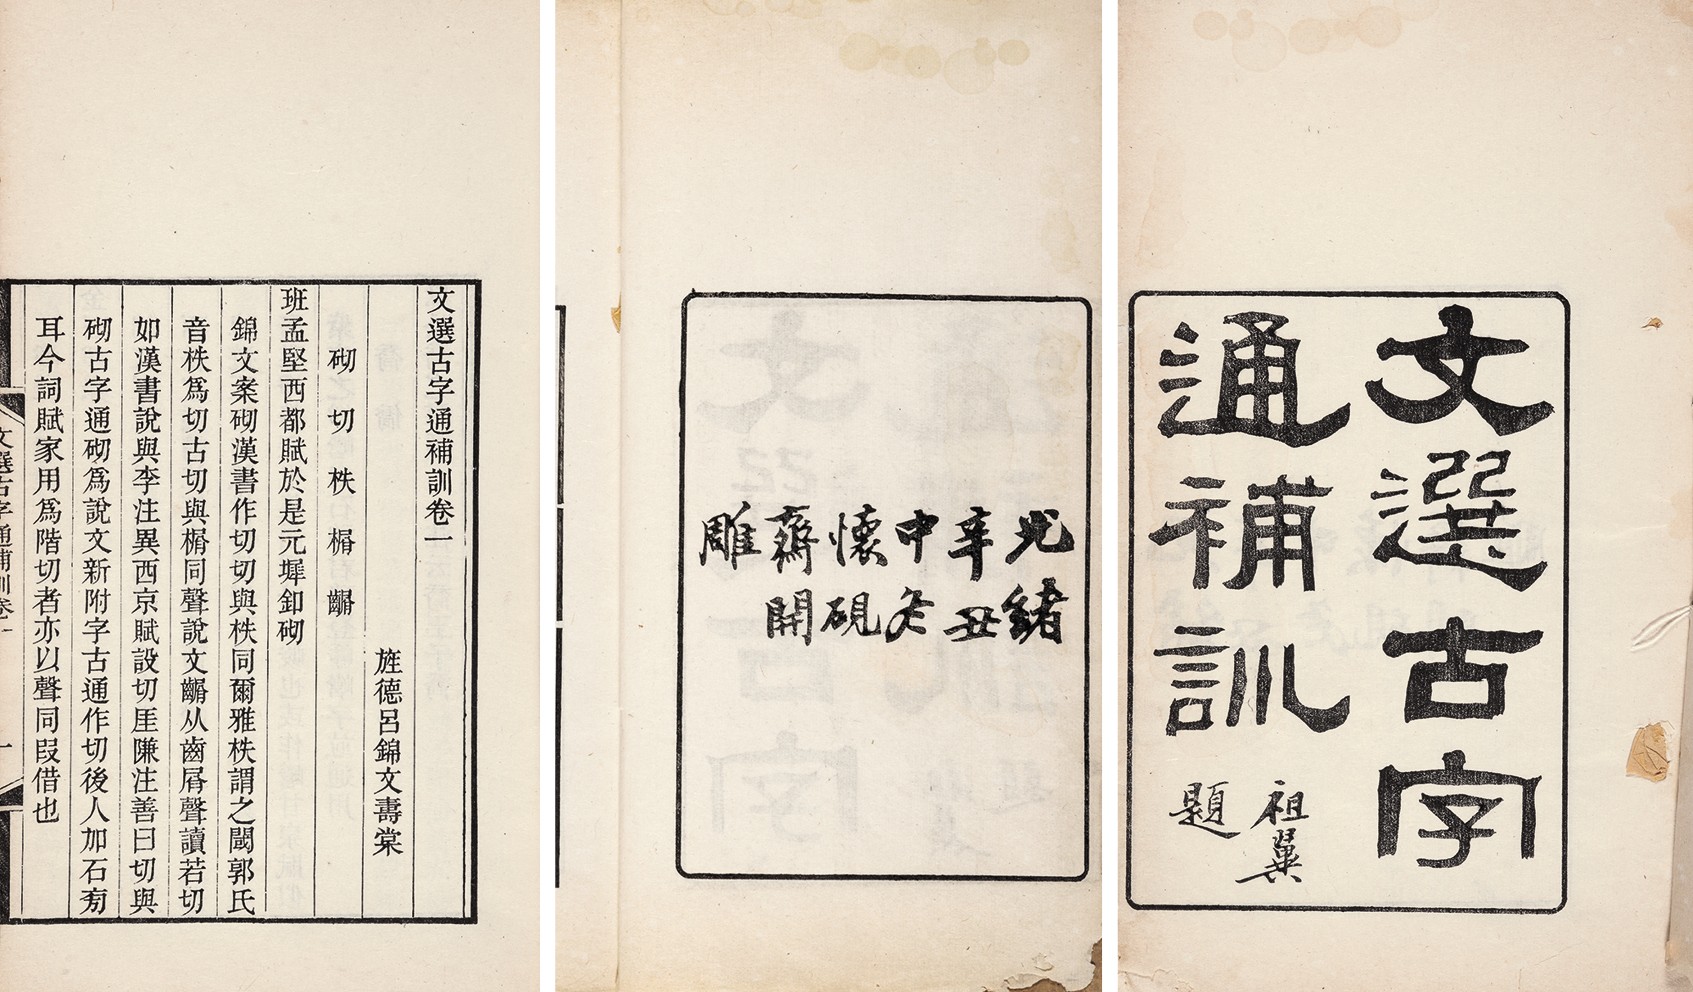 文選古字
通補訓
祖翼
題
光緒
辛丑
中冬
懷硯
齋開
雕
文選古字通補訓卷一
旌德呂錦文壽棠
砌 切 柣 榍
班孟堅西都賦於是元墀釦砌
錦文案砌漢書作切切與柣同爾雅柣謂之閾郭氏
音柣爲切古切與榍同聲說文从齒屑聲讀若切
如漢書說與李注異西京賦設切厓隒注善曰切與
砌古字通砌爲說文新附字古通作切後人加石㫄
耳今詞賦家用爲階切者亦以聲同叚借也
文選古字通補訓卷一
一